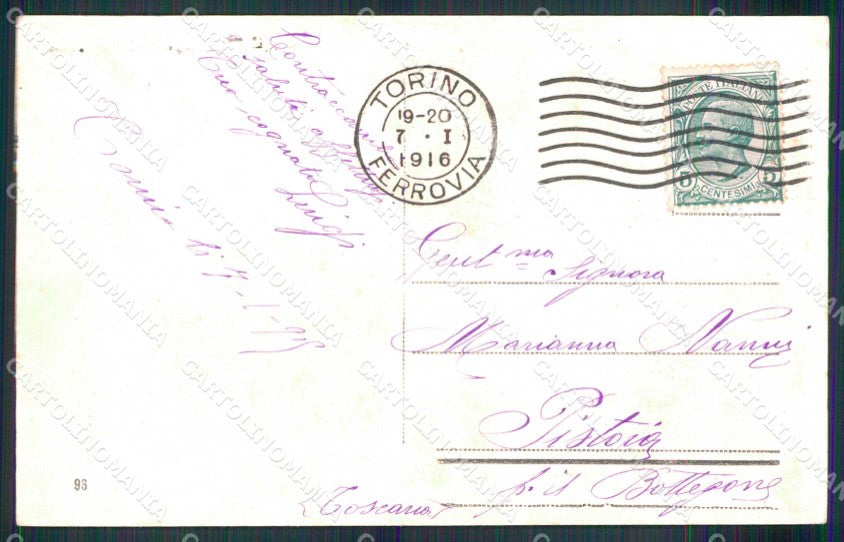 Contraccambio
saluti e
Tuo cognato
Luigi
li 7-1-
TORINO
19-20
7 · I
1916
FERROVIA
POSTE ITALIANE
5 CENTESIMI 5
Gent ma
Signora
Marianna Nanni
Pistoia
p. il Bottegone
(Toscana)
96
CARTOLINOMANIA